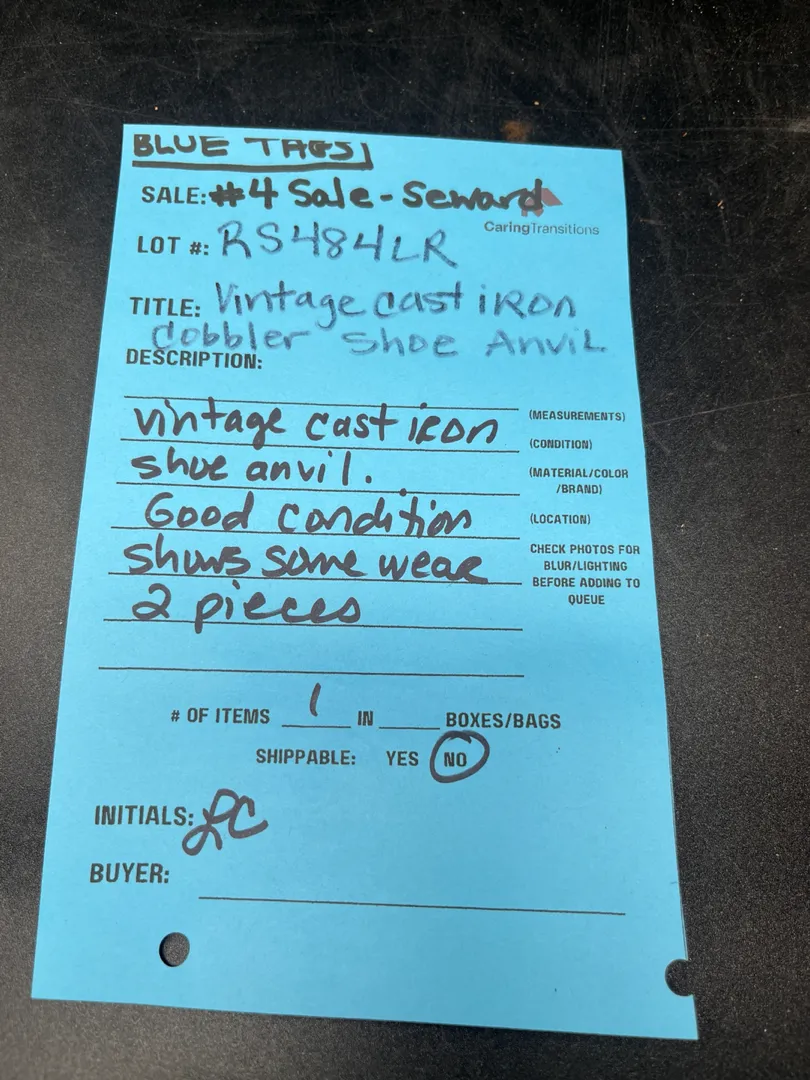 BLUE TAGS
SALE: #4 Sale - Seward
CaringTransitions
LOT #: RS484LR
TITLE: Vintage cast iRon
Cobbler Shoe Anvil
DESCRIPTION:
vintage cast iron
(MEASUREMENTS)
(CONDITION)
shoe anvil.
(MATERIAL/COLOR
/BRAND)
Good condition
(LOCATION)
shows some wear
CHECK PHOTOS FOR
BLUR/LIGHTING
BEFORE ADDING TO
QUEUE
2 pieces
# OF ITEMS 1 IN ____ BOXES/BAGS
SHIPPABLE: YES NO
INITIALS: LC
BUYER: